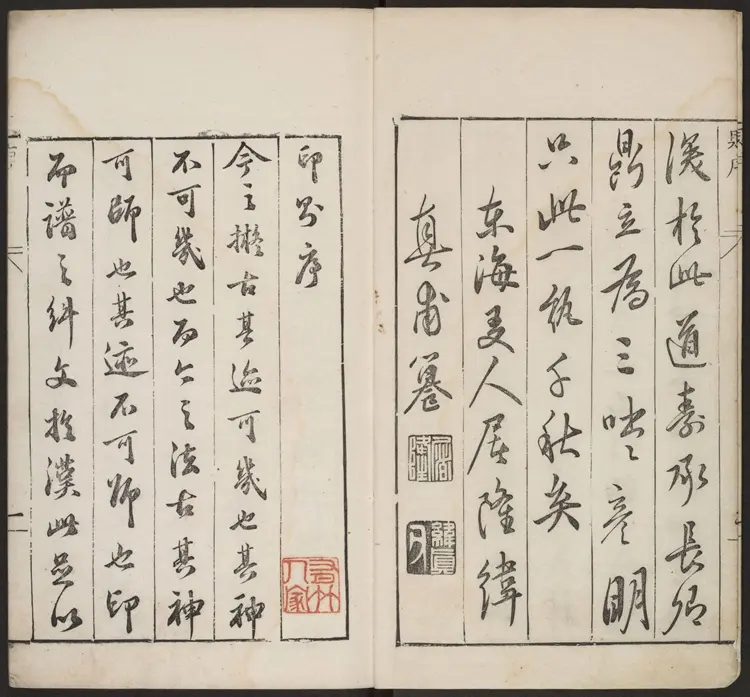 漢於此道壽承長卿
鼎立為三咄咄彥明
只此一千秋矣
東海人屠隆緯
真甫
屠隆
印序
今之擬古其迹可幾也其神
不可幾也而今之法古其神
可師也其迹不可師也印
而譜之糾文於漢此足以